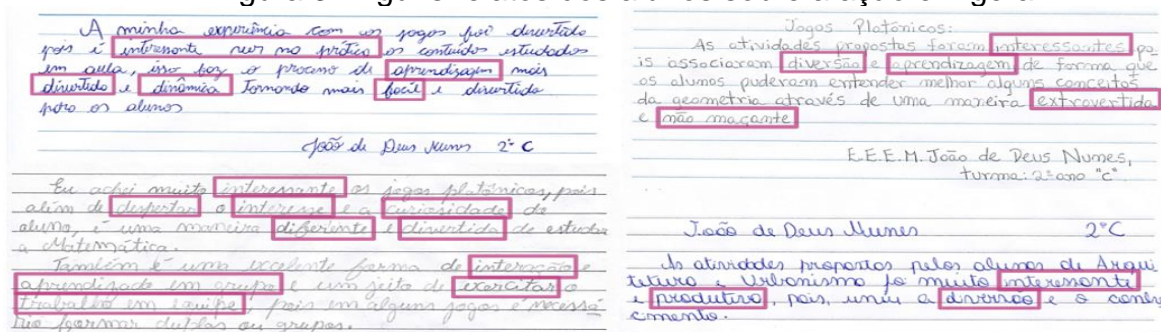 A minha experiência com os jogos foi divertido
pois é interessante ver na prática os conteúdos estudados
em aula, isso faz o processo de aprendizagem mais
divertido e dinâmico tornando mais fácil e divertido
para os alunos
João de Deus Nunes 2º C
Eu achei muito interessante os jogos platônicos, pois
além de despertar o interesse e a curiosidade do
aluno, é uma maneira diferente e divertida de estudar
a Matemática.
Também é uma excelente forma de interação e
aprendizado em grupo e um jeito de exercitar o
trabalho em equipe, pois em alguns jogos é necessá
rio formar duplas ou grupos.
Jogos Platônicos:
As atividades propostas foram interessantes po
is associaram diversão e aprendizagem de forma que
os alunos puderam entender melhor alguns conceitos
da geometria através de uma maneira extrovertida
e não maçante
E.E.E.M. João de Deus Nunes,
turma: 2º ano "c"
João de Deus Nunes 2ºC
As atividades propostas pelos alunos de Arqui
tetura e Urbanismo foi muito interessante
e produtivo, pois, uniu a diversão e o conhe
cimento.